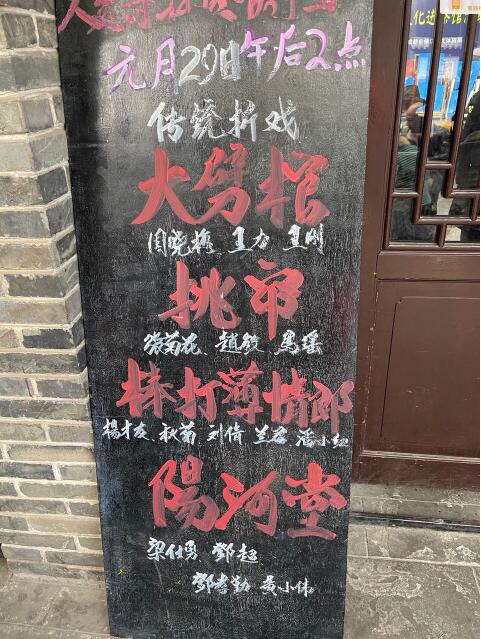 元月29日午后2点
传统折戏
大劈棺
周晓梅 王力 王刚
挑帘
张菊花 赵敏 马瑶
棒打薄情郎
楊才友 秋菊 刘倩 兰君 潘小红
陽河堂
梁仕勇 鄧超
鄧孝勤 黄小伟